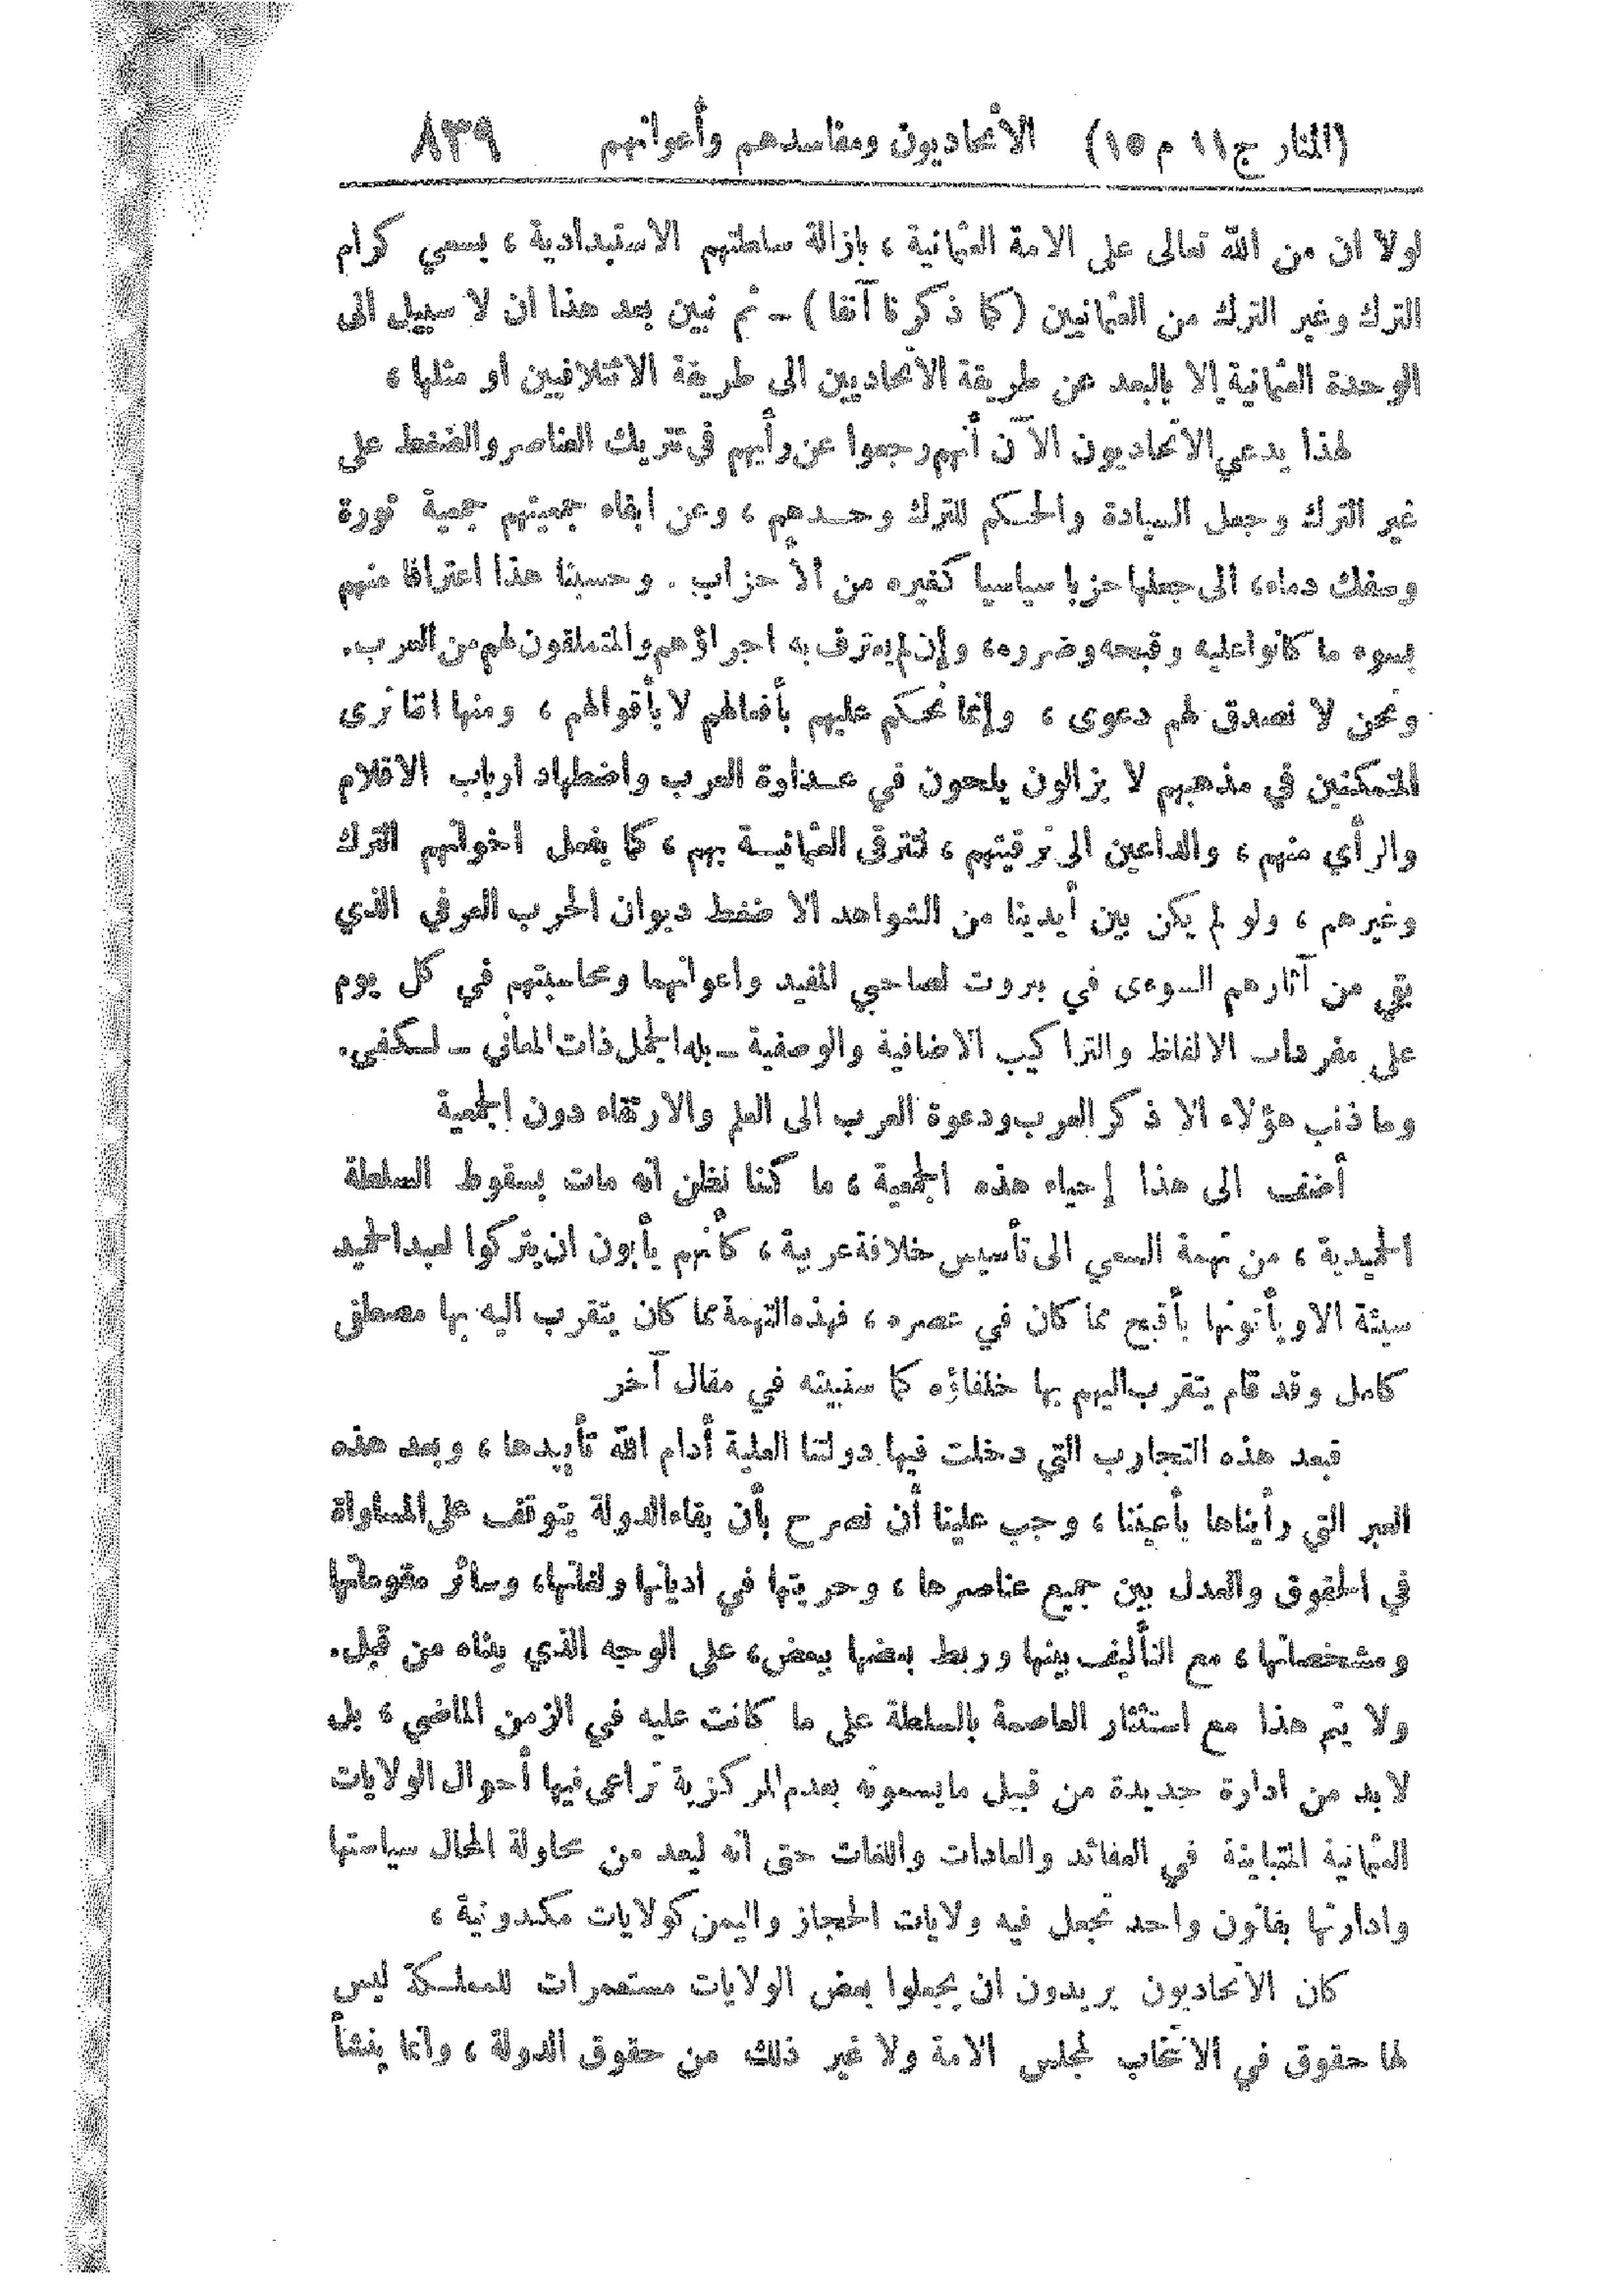 (المنار ج ١١ م ١٥) الاتحاديون ومفاسدهم وأعوانهم ٨٣٩
لولا ان من الله تعالى على الامة العثمانية ، بإزالة سلطتهم الاستبدادية ، بسعي كرام
الترك وغير الترك من العثمانيين (كما ذكرنا آنفا) ــ ثم نبين بعد هذا ان لا سبيل الى
الوحدة العثمانية إلا بالبعد عن طريقة الاتحاديين الى طريقة الائتلافيين او مثلها ،
لهذا يدعي الاتحاديون الآن أنهم رجعوا عن رأيهم في تتريك العناصر والضغط على
غير الترك وجعل السيادة والحكم للترك وحدهم ، وعن ابقاء جمعيتهم جمعية ثورة
وسفك دماء، الى جعلها حزبا سياسيا كغيره من الأحزاب . وحسبنا هذا اعترافا منهم
بسوء ما كانوا عليه وقبحه وضرره، وإن لم يعترف به اجراؤهم والمتملقون لهم من العرب.
ونحن لا نصدق لهم دعوى ، وإنما نحكم عليهم بأفعالهم لا بأقوالهم ، ومنها اننا نرى
المتمكنين في مذهبهم لا يزالون يلحون في عداوة العرب واضطهاد ارباب الاقلام
والرأي منهم ، والداعين الى ترقيتهم ، لترقى العثمانية بهم ، كما يفعل اخوانهم الترك
وغيرهم ، ولو لم يكن بين أيدينا من الشواهد الا ضغط ديوان الحرب العرفي الذي
بقي من آثارهم السوءى في بيروت لصاحبي المفيد واعوانهما ومحاسبتهم في كل يوم
على مفردات الالفاظ والتراكيب الاضافية والوصفية ــ بله الجمل ذات المعاني ــ لكفى.
وما ذنب هؤلاء الا ذكر العرب ودعوة العرب الى العلم والارتقاء دون الجمعية
أضف الى هذا إحياء هذه الجمعية ، ما كنا نظن انه مات بسقوط السلطة
الحميدية ، من تهمة السعي الى تأسيس خلافة عربية ، كأنهم يأبون ان يتركوا لعبد الحميد
سيئة الا ويأتونها بأقبح مما كان في عصره ، فهذه التهمة مما كان يتقرب اليه بها مصطفى
كامل وقد قام يتقرب اليهم بها خلفاؤه كما سنبينه في مقال آخر
فبعد هذه التجارب التي دخلت فيها دولتنا العلية أدام الله تأييدها ، وبعد هذه
العبر التي رأيناها بأعيننا ، وجب علينا أن نصرح بأن بقاء الدولة يتوقف على المساواة
في الحقوق والعدل بين جميع عناصرها ، وحريتها في اديانها ولغاتها، وسائر مقوماتها
ومشخصاتها ، مع التأليف بينها وربط بعضها ببعض، على الوجه الذي بيناه من قبل.
ولا يتم هذا مع استئثار العاصمة بالسلطة على ما كانت عليه في الزمن الماضي ، بل
لا بد من ادارة جديدة من قبيل ما يسمونه بعدم المركزية تراعى فيها أحوال الولايات
العثمانية المتباينة في العقائد والعادات واللغات حتى انه ليعد من محاولة المحال سياستها
وادارتها بقانون واحد تجعل فيه ولايات الحجاز واليمن كولايات مكدونية ،
كان الاتحاديون يريدون ان يجعلوا بعض الولايات مستعمرات للمملكة ليس
لها حقوق في الانتخاب لمجلس الامة ولا غير ذلك من حقوق الدولة ، وانما ينشأ